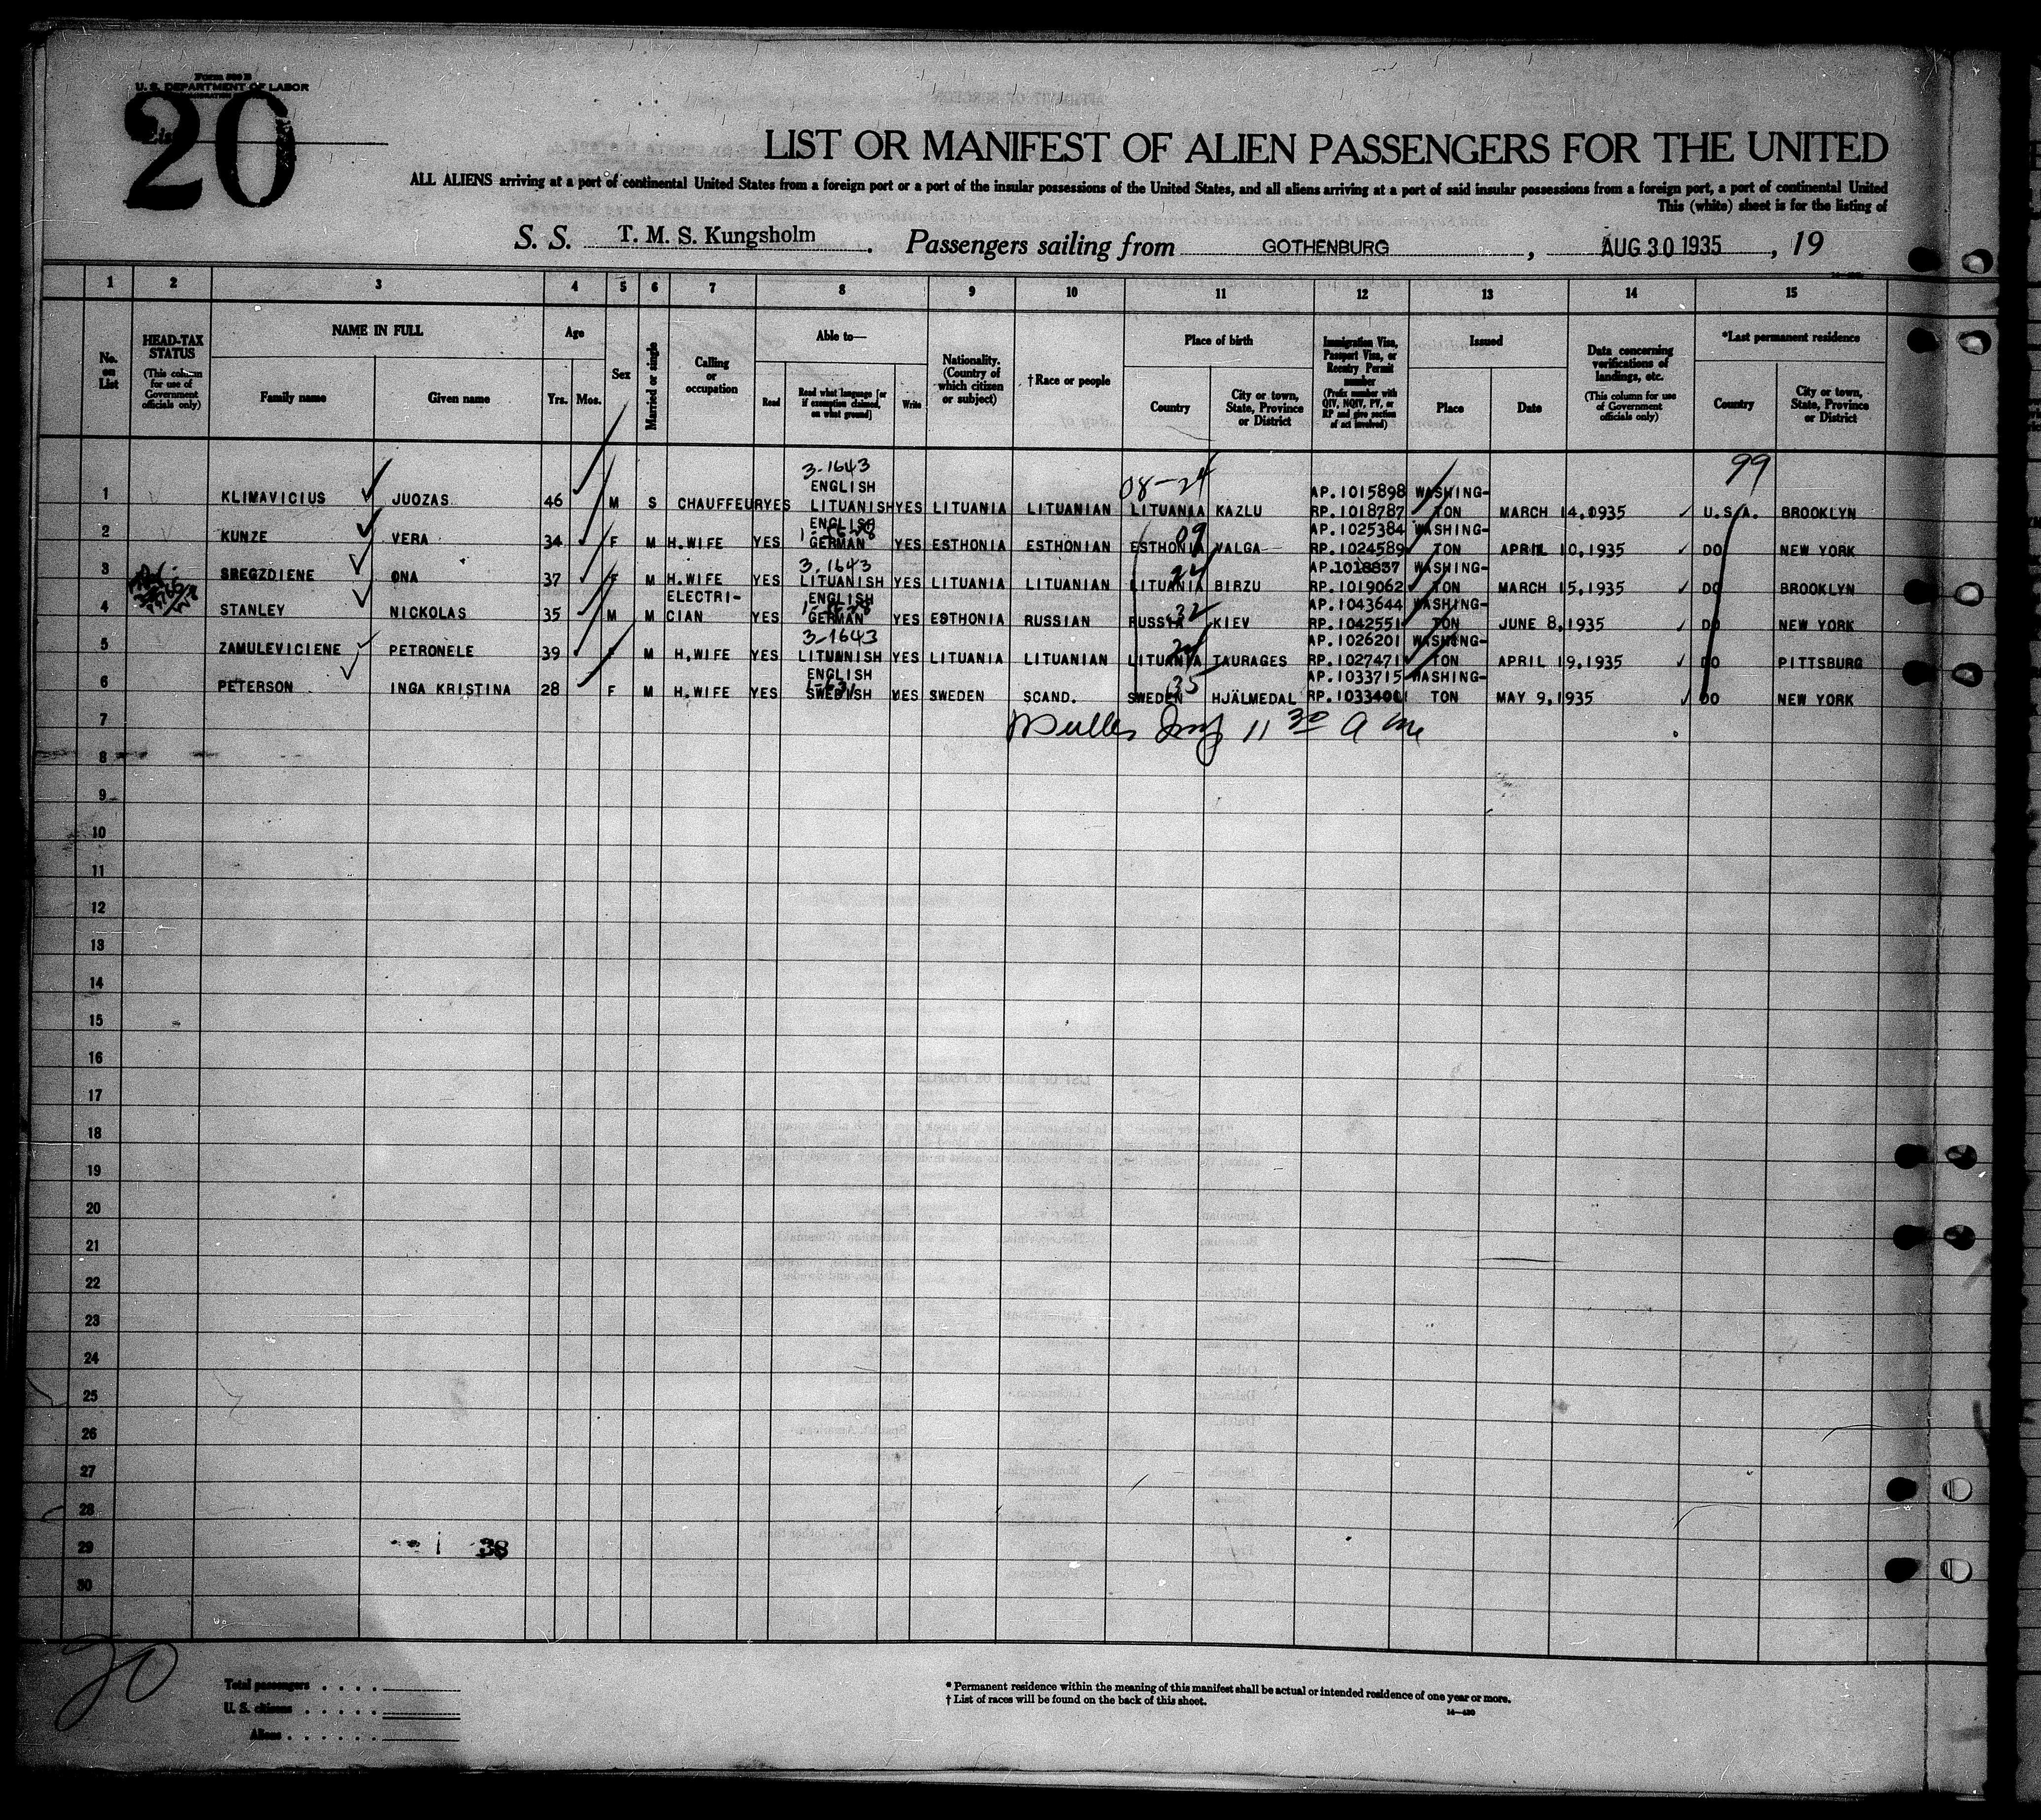 Form 500 B
U. S. DEPARTMENT OF LABOR
20
List
LIST OR MANIFEST OF ALIEN PASSENGERS FOR THE UNITED
ALL ALIENS arriving at a port of continental United States from a foreign port or a port of the insular possessions of the United States, and all aliens arriving at a port of said insular possessions from a foreign port, a port of continental United
This (white) sheet is for the listing of
S. S. T. M. S. Kungsholm. Passengers sailing from GOTHENBURG, AUG 30 1935, 19
1 2 3 4 5 6 7 8 9 10 11 12 13 14 15
No. on List
HEAD-TAX STATUS
(This column for use of Government officials only)
NAME IN FULL
Family name
Given name
Age
Yrs. Mos.
Sex
Married or single
Calling or occupation
Able to—
Read
Read what language [or if exemption claimed, on what ground]
Write
Nationality. (Country of which citizen or subject)
†Race or people
Place of birth
Country
City or town, State, Province or District
Immigration Visa, Passport Visa, or Reentry Permit number
(Prefix number with QIV, NQIV, PV, or RP and give section of act involved)
Issued
Place
Date
Data concerning verifications of landings, etc.
(This column for use of Government officials only)
*Last permanent residence
Country
City or town, State, Province or District
3-1643 08-24 99
ENGLISH AP.1015898 WASHING-
1 KLIMAVICIUS JUOZAS 46 M S CHAUFFEUR YES LITUANISH YES LITUANIA LITUANIAN LITUANIA KAZLU RP.1018787 TON MARCH 14.1935 U.S.A. BROOKLYN
ENGLISH 09 AP.1025384 WASHING-
2 KUNZE VERA 34 F M H.WIFE YES GERMAN YES ESTHONIA ESTHONIAN ESTHONIA VALGA RP.1024589 TON APRIL 10,1935 DO NEW YORK
3-1643 24 AP.1018837 WASHING-
3 SREGZDIENE ONA 37 F M H.WIFE YES LITUANISH YES LITUANIA LITUANIAN LITUANIA BIRZU RP.1019062 TON MARCH 15,1935 DO BROOKLYN
ELECTRI- ENGLISH 32 AP.1043644 WASHING-
4 STANLEY NICKOLAS 35 M M CIAN YES GERMAN YES ESTHONIA RUSSIAN RUSSIA KIEV RP.1042551 TON JUNE 8,1935 DO NEW YORK
3-1643 24 AP.1026201 WASHING-
5 ZAMULEVICIENE PETRONELE 39 F M H.WIFE YES LITUANISH YES LITUANIA LITUANIAN LITUANIA TAURAGES RP.1027471 TON APRIL 19,1935 DO PITTSBURG
ENGLISH 35 AP.1033715 WASHING-
6 PETERSON INGA KRISTINA 28 F M H.WIFE YES SWEDISH YES SWEDEN SCAND. SWEDEN HJÄLMEDAL RP.1033400 TON MAY 9,1935 DO NEW YORK
7 11 30 a m
8
9
10
11
12
13
14
15
16
17
18
19
20
21
22
23
24
25
26
27
28
29 38
30
20
Total passengers . . . .
U. S. citizens . . . . .
Aliens . . . . . .
* Permanent residence within the meaning of this manifest shall be actual or intended residence of one year or more.
† List of races will be found on the back of this sheet.
14—430